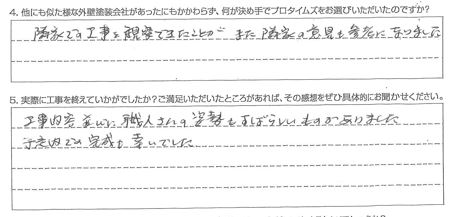 4. 他にも似た様な外壁塗装会社があったにもかかわらず、何が決め手でプロタイムズをお選びいただいたのですか?
隣家での工事を観察できたことが また 隣家の意見も参考になりました
5. 実際に工事を終えていかがでしたか?ご満足いただいたところがあれば、その感想をぜひ具体的にお聞かせください。
工事内容並びに職人さんの姿勢もすばらしいものがありました
予定内での完成も幸いでした